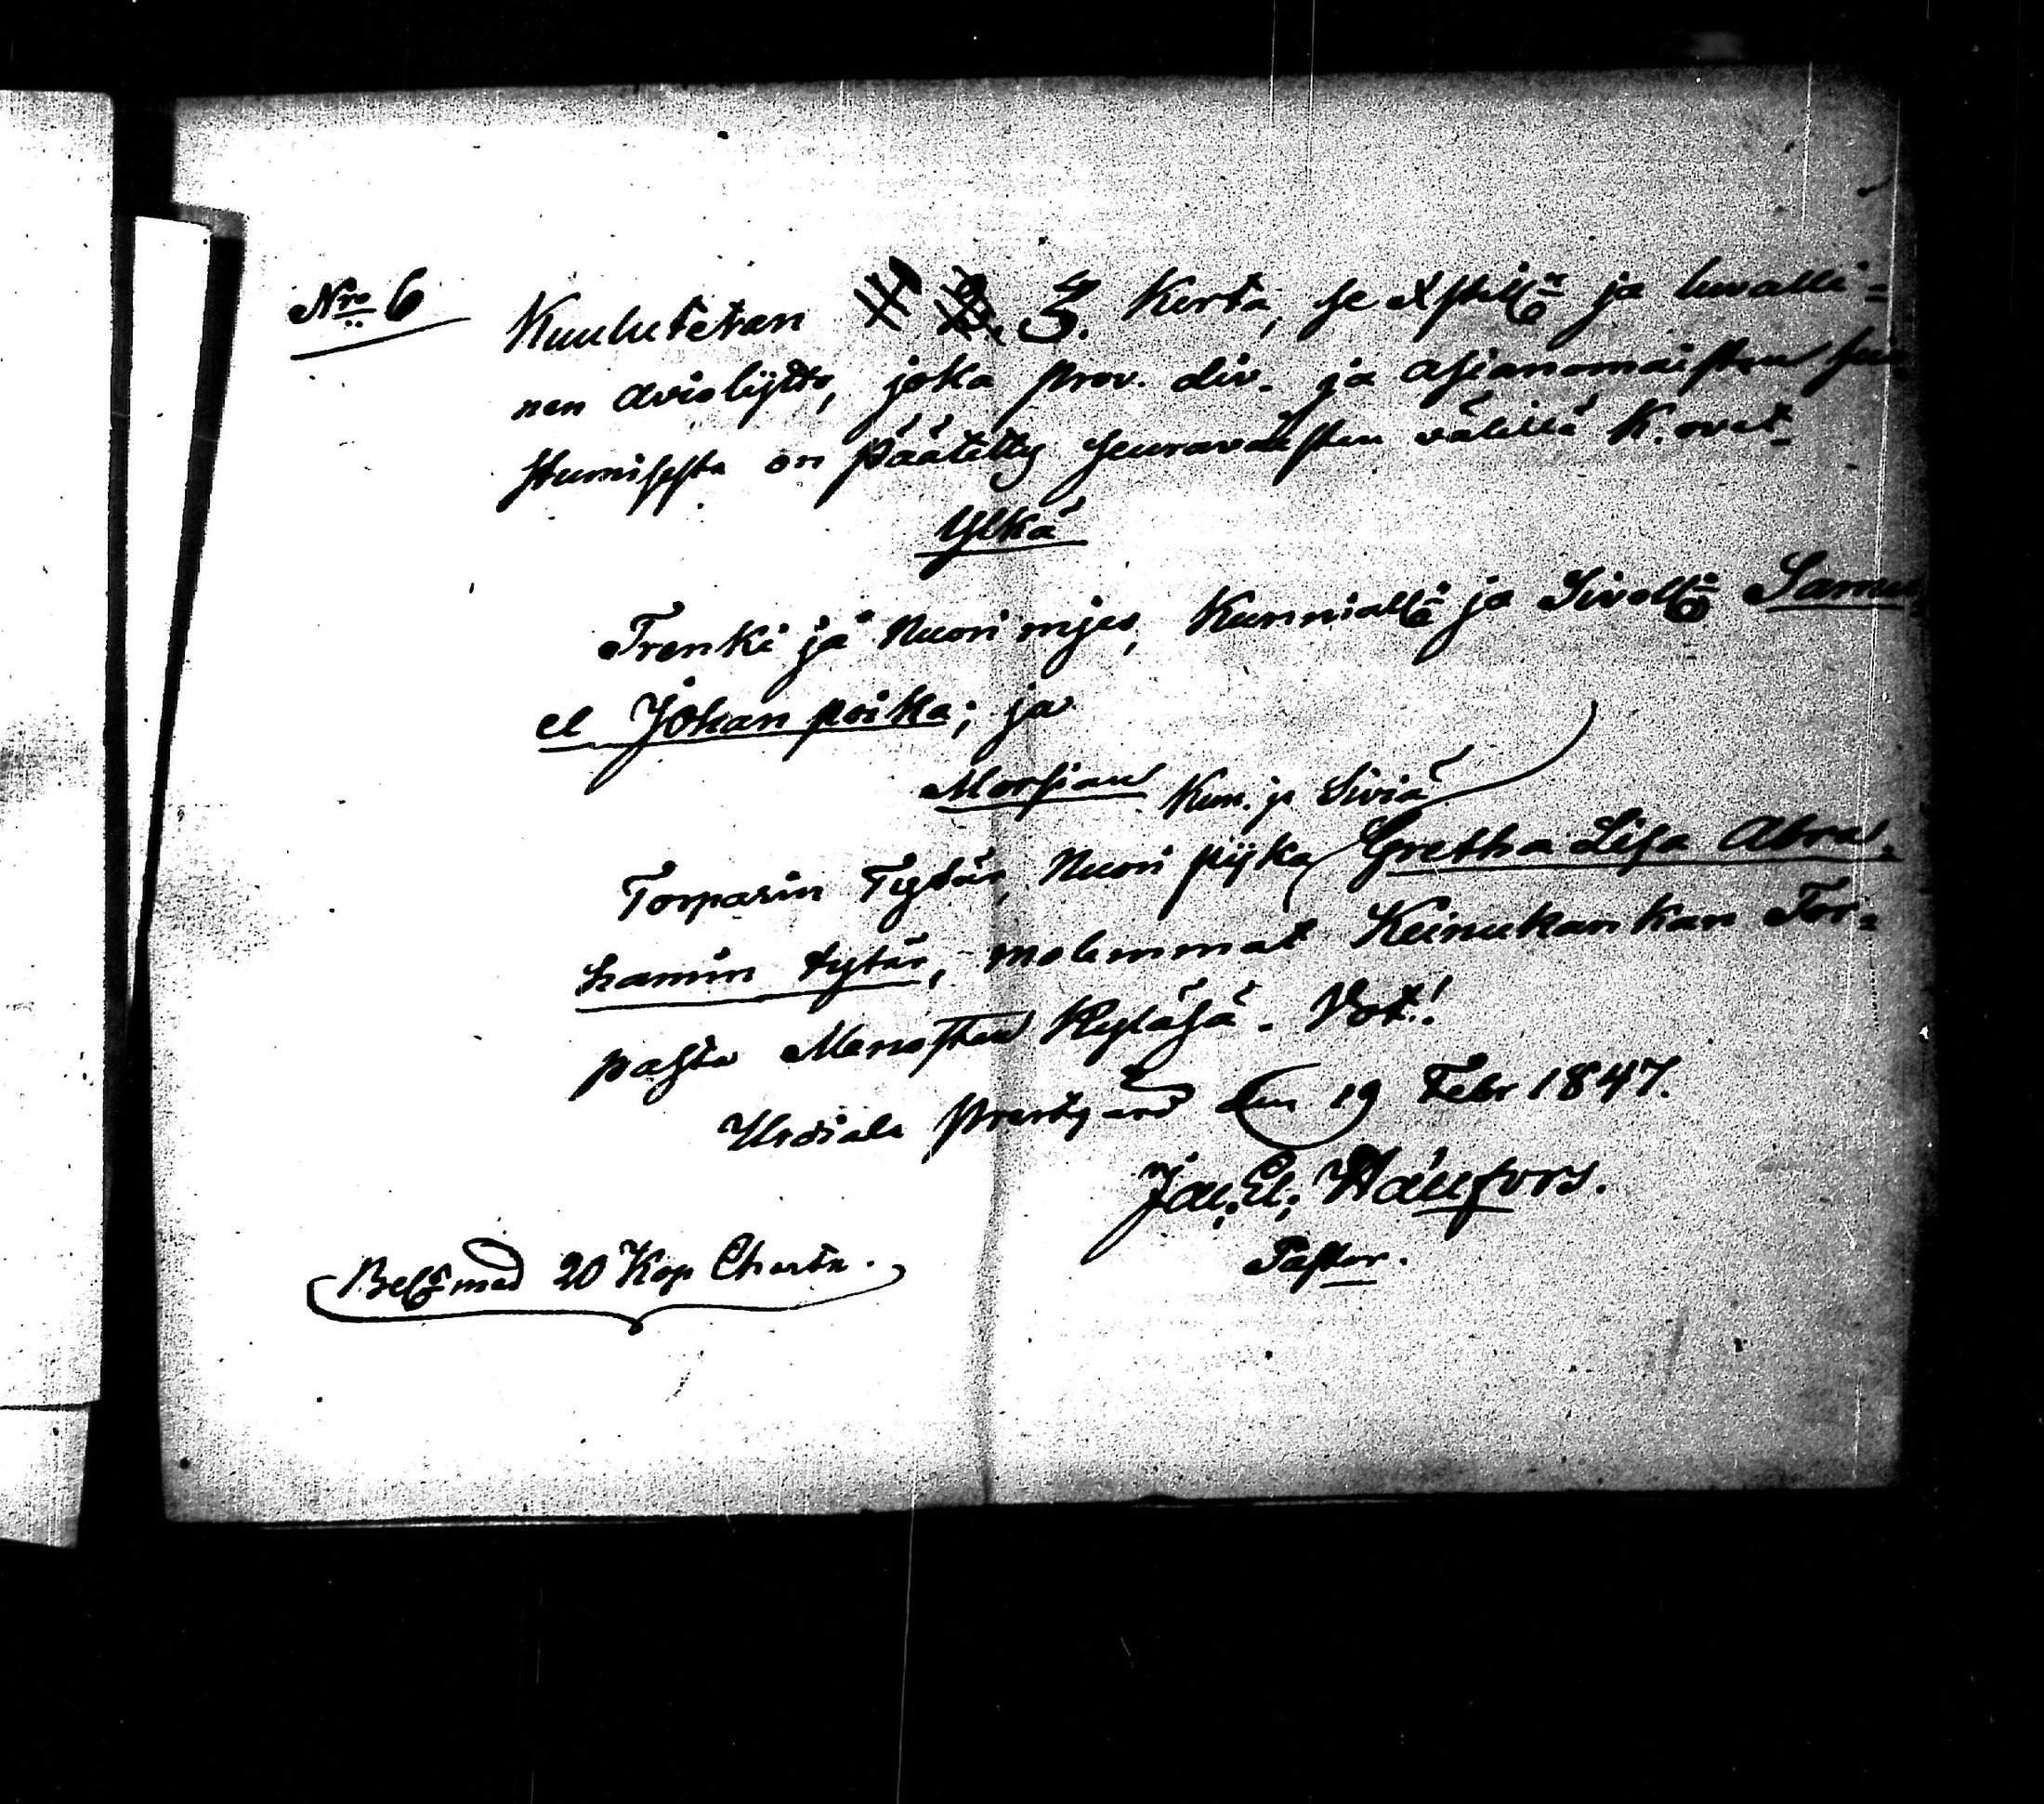 Nro 6 Kuulutetan 1. 2. 3. Kerta, se Xstill:n ja luvalli=
nen Avioliitto, joka prov. div. ja asianomaisten suo=
stumisesta on päätetty seuravaisten välillä K. ovat
Ylkä
Trenki ja Nuori mjes, Kunniall:n ja Sivoll:n Samu=
el Johan poika; ja
Morsian Kun. ja Siviä
Torparin Tytär, Nuori piika Gretha Lisa Abra=
hamin tytär, molemmat Keinukankan Tor=
pasta Menosten Kyläsä. Vot.!
Urdiala Prestgård den 19 Febr 1847.
Jac. El. Hällfors.
Pastor.
Bel:s med 20 Kop Charta.